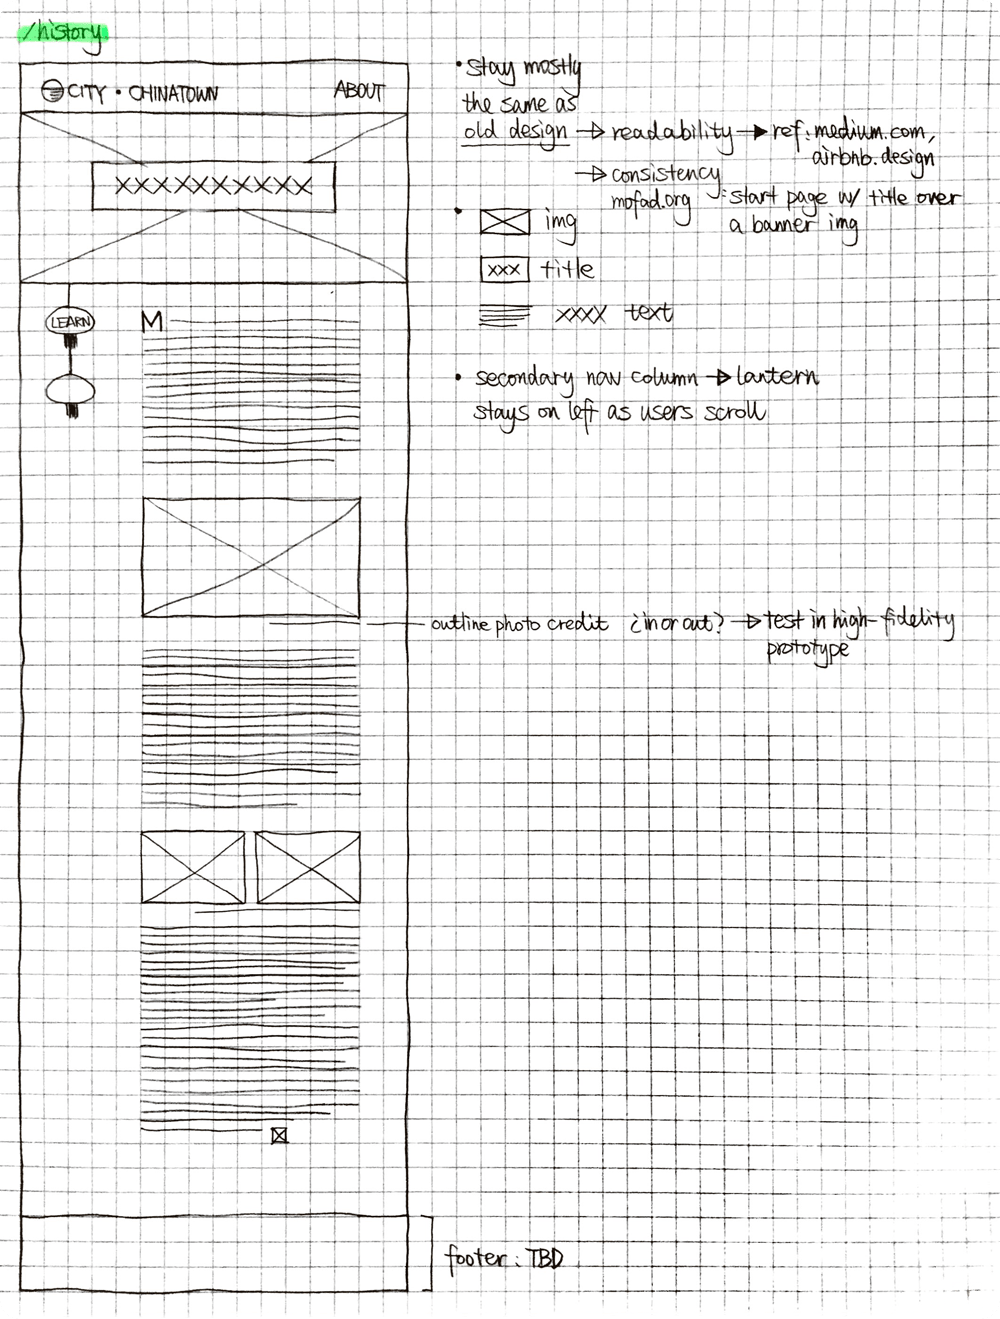 /history
CITY • CHINATOWN
ABOUT
XXXXXXXXXX
LEARN
M
• stay mostly
the same as
old design → readability → ref: medium.com,
airbnb.design
→ consistency
mofad.org : start page w/ title over
a banner img
• img
xxx title
xxxx text
• secondary nav column → lantern
stays on left as users scroll
outline photo credit ¿in or out? → test in high-fidelity
prototype
footer: TBD